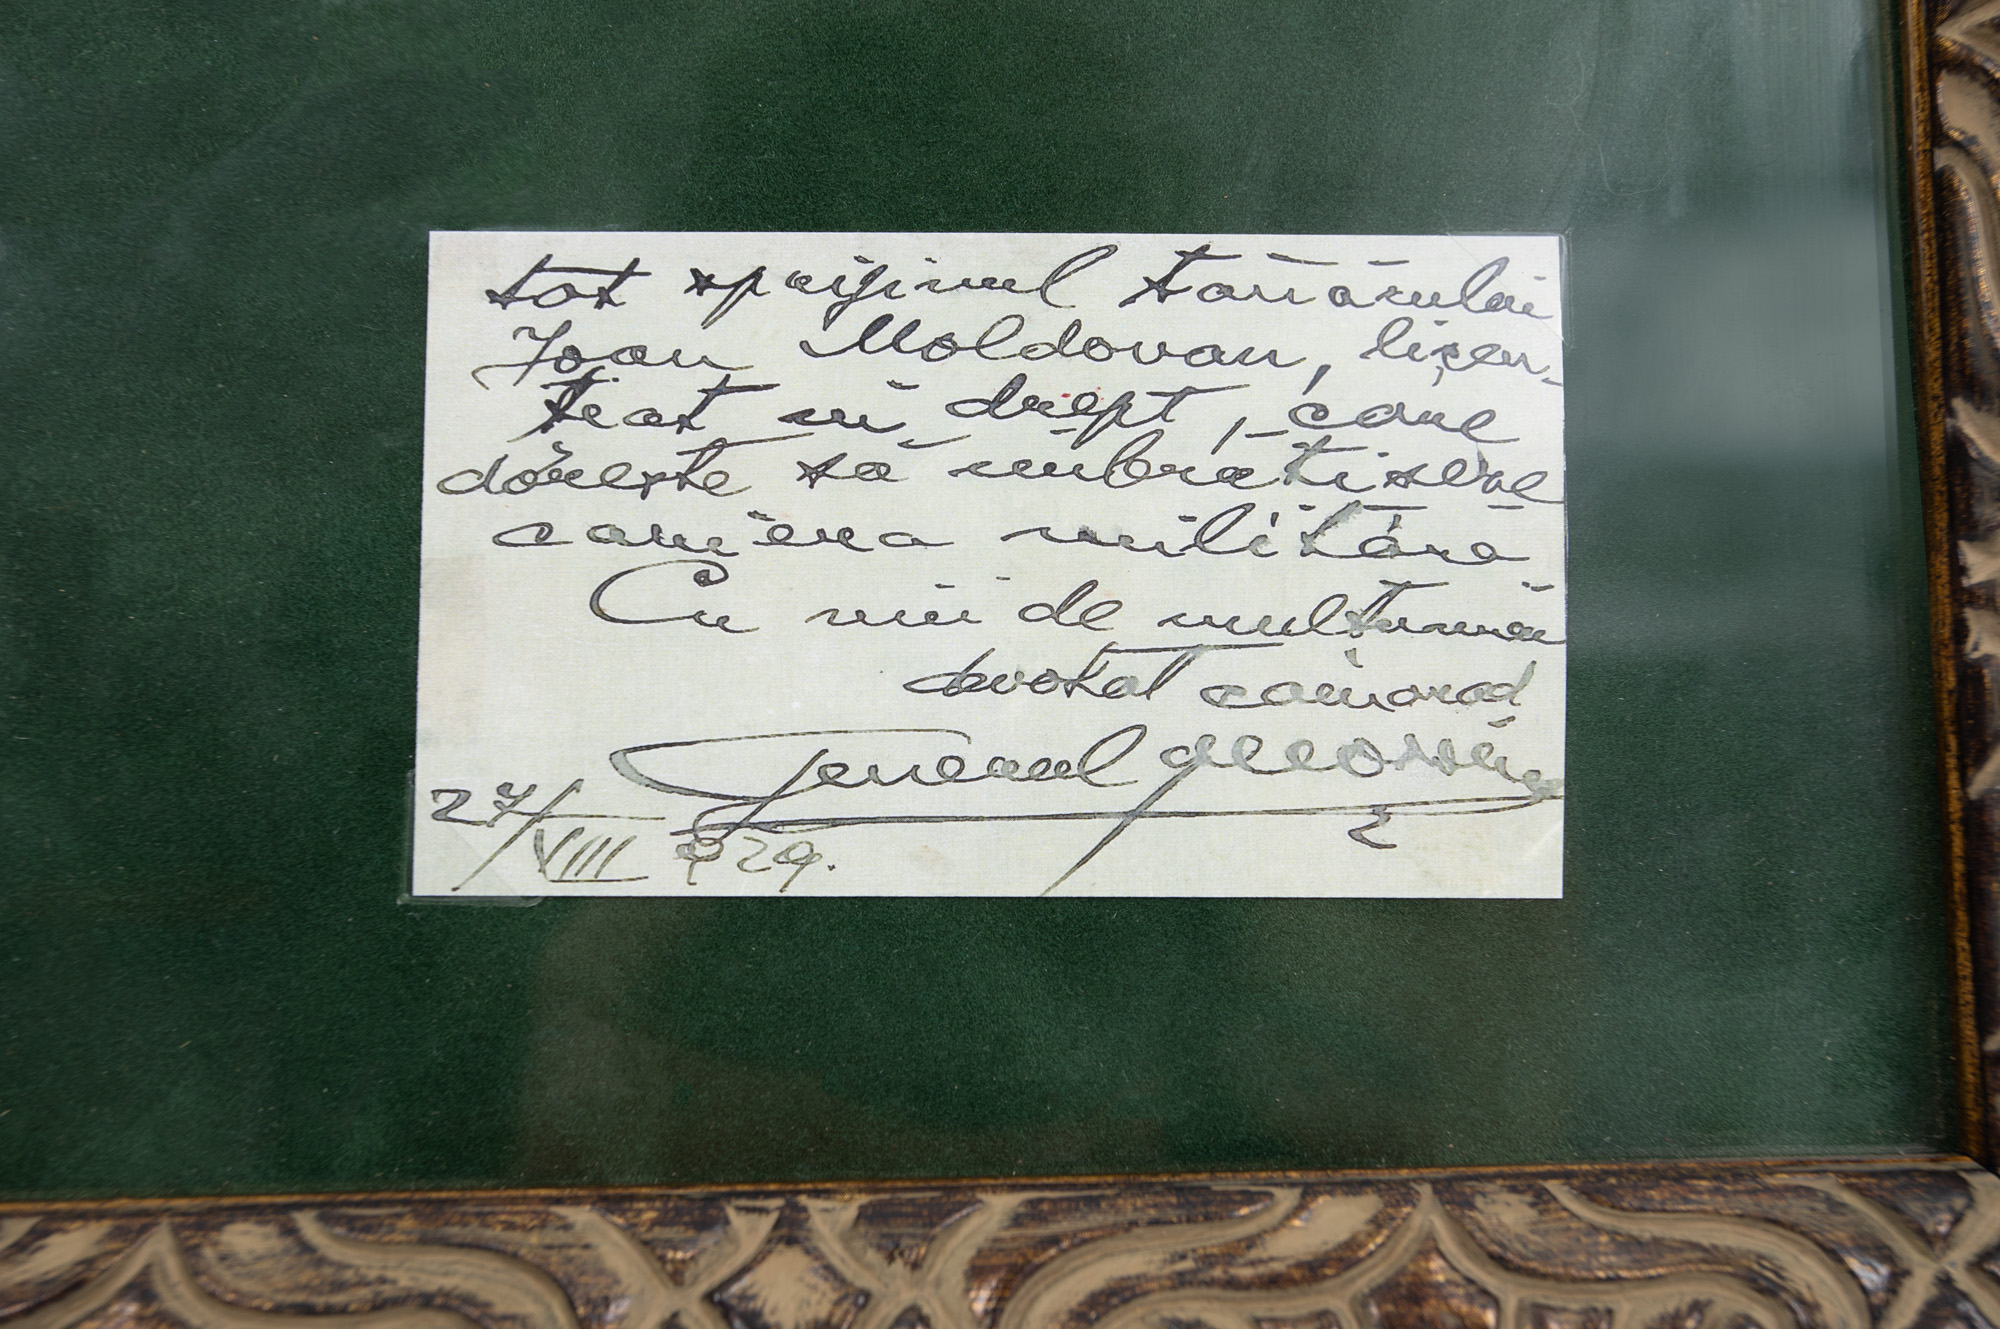 tot sprijinul tânărului
Ioan Moldovan, licen-
țiat in drept, care
dorește să imbrățiseze
cariera militară
Cu mii de multumiri
devotat camarad
General
27/VIII 929.